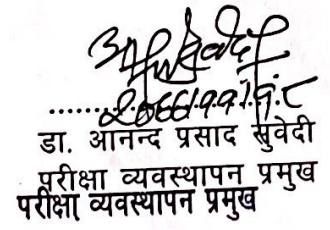 २०६६।११।१८
डा. आनन्द प्रसाद सुवेदी
परीक्षा व्यवस्थापन प्रमुख
परीक्षा व्यवस्थापन प्रमुख